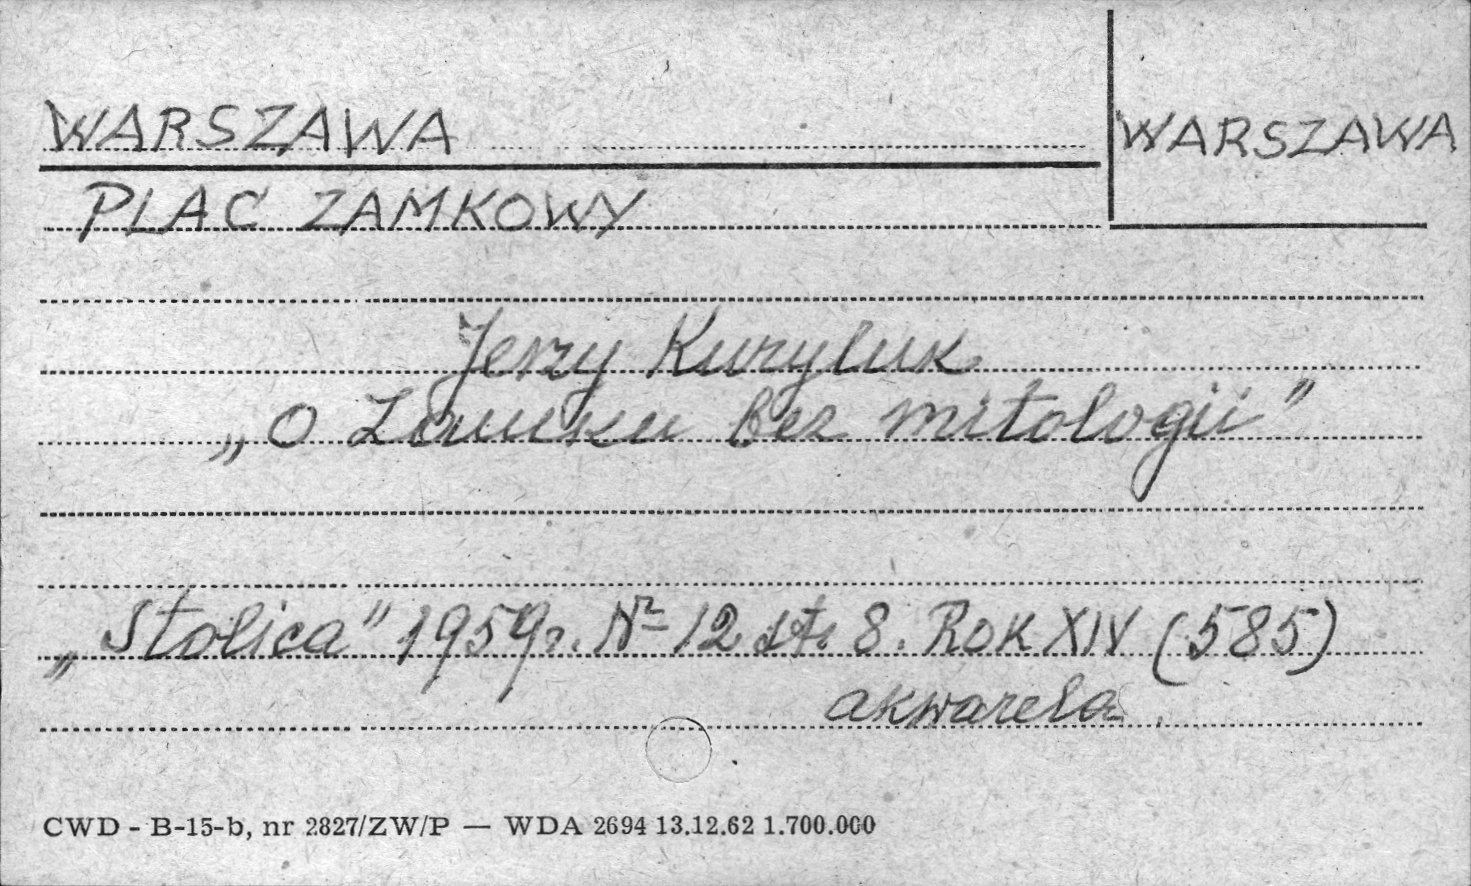 WARSZAWA
WARSZAWA
PLAC ZAMKOWY
Jerzy Kuryluk
„O Zamku bez mitologii”
„Stolica” 1959r. № 12 str. 8. ROK XIV (585)
akwarela
CWD - B-15-b, nr 2827/ZW/P — WDA 2694 13.12.62 1.700.000